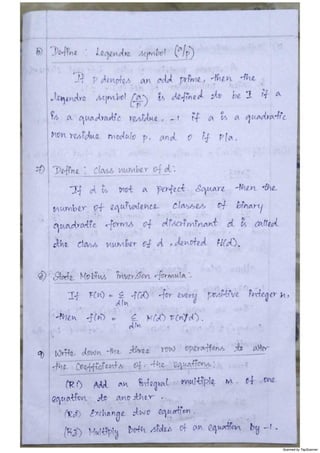 6) Define : Legendre symbol (a/p)
If p denotes an odd prime, then the
Legendre symbol (a/p) is defined to be 1 if a
is a quadratic residue, -1 if a is a quadratic
non residue modulo p. and 0 if p|a.
7) Define : class number of d.
If d is not a perfect square then the
number of equivalence classes of binary
quadratic forms of discriminant d is called
the class number of d, denoted H(d).
8) State Mobius inversion formula.
If F(n) = Σ f(d) for every positive integer n,
d|n
then f(n) = Σ μ(d) F(n/d).
d|n
9) Write down the three row operations to alter
the coefficients of the equations.
(R1) Add an integral multiple m of one
equation to another.
(R2) Exchange two equation.
(R3) Multiply both sides of an equation by -1.
Scanned by TapScanner